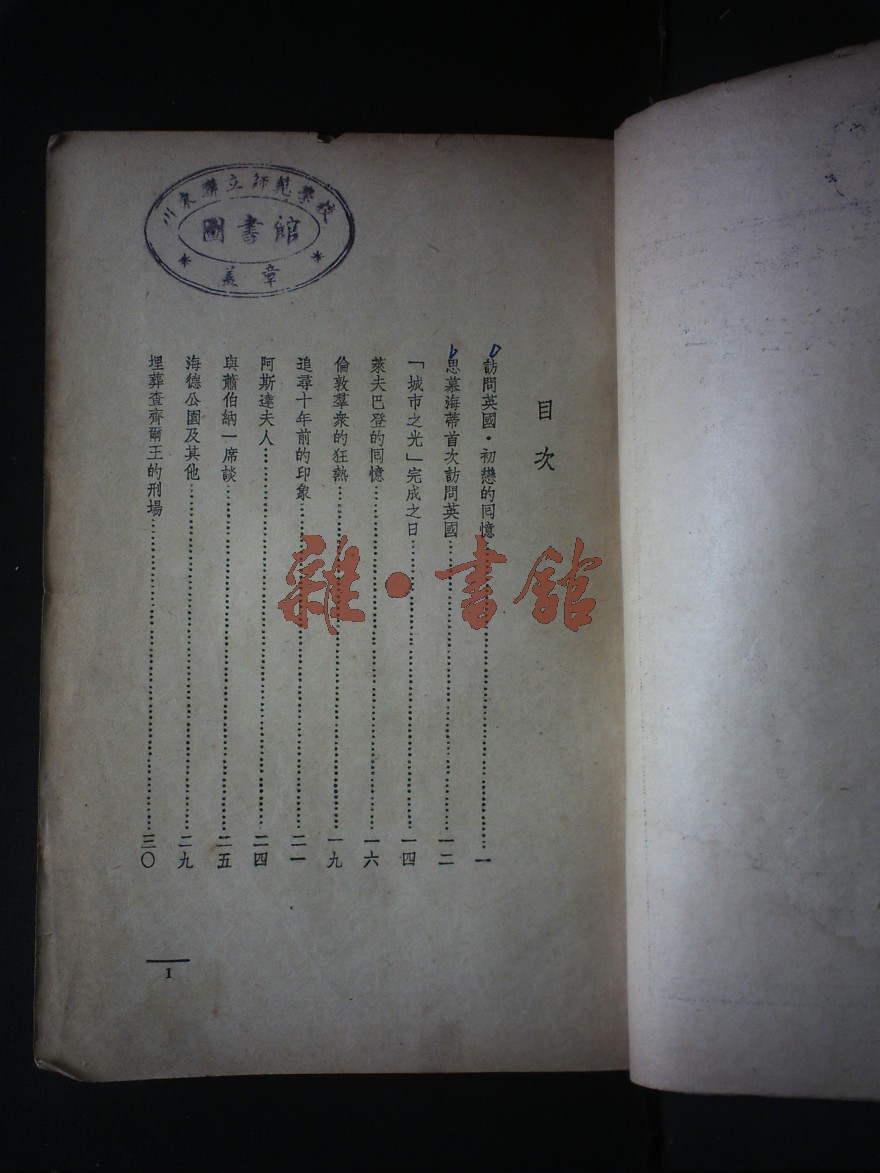 川東聯立師範學校
圖書館
蓋章
目次
訪問英國·初戀的回憶……一
思慕海蒂首次訪問英國……一二
「城市之光」完成之日……一四
萊夫巴登的回憶……一六
倫敦羣衆的狂熱……一九
追尋十年前的印象……二一
阿斯達夫人……二四
與蕭伯納一席談……二五
海德公園及其他……二九
埋葬查齊爾王的刑場……三〇
1
雜·書館